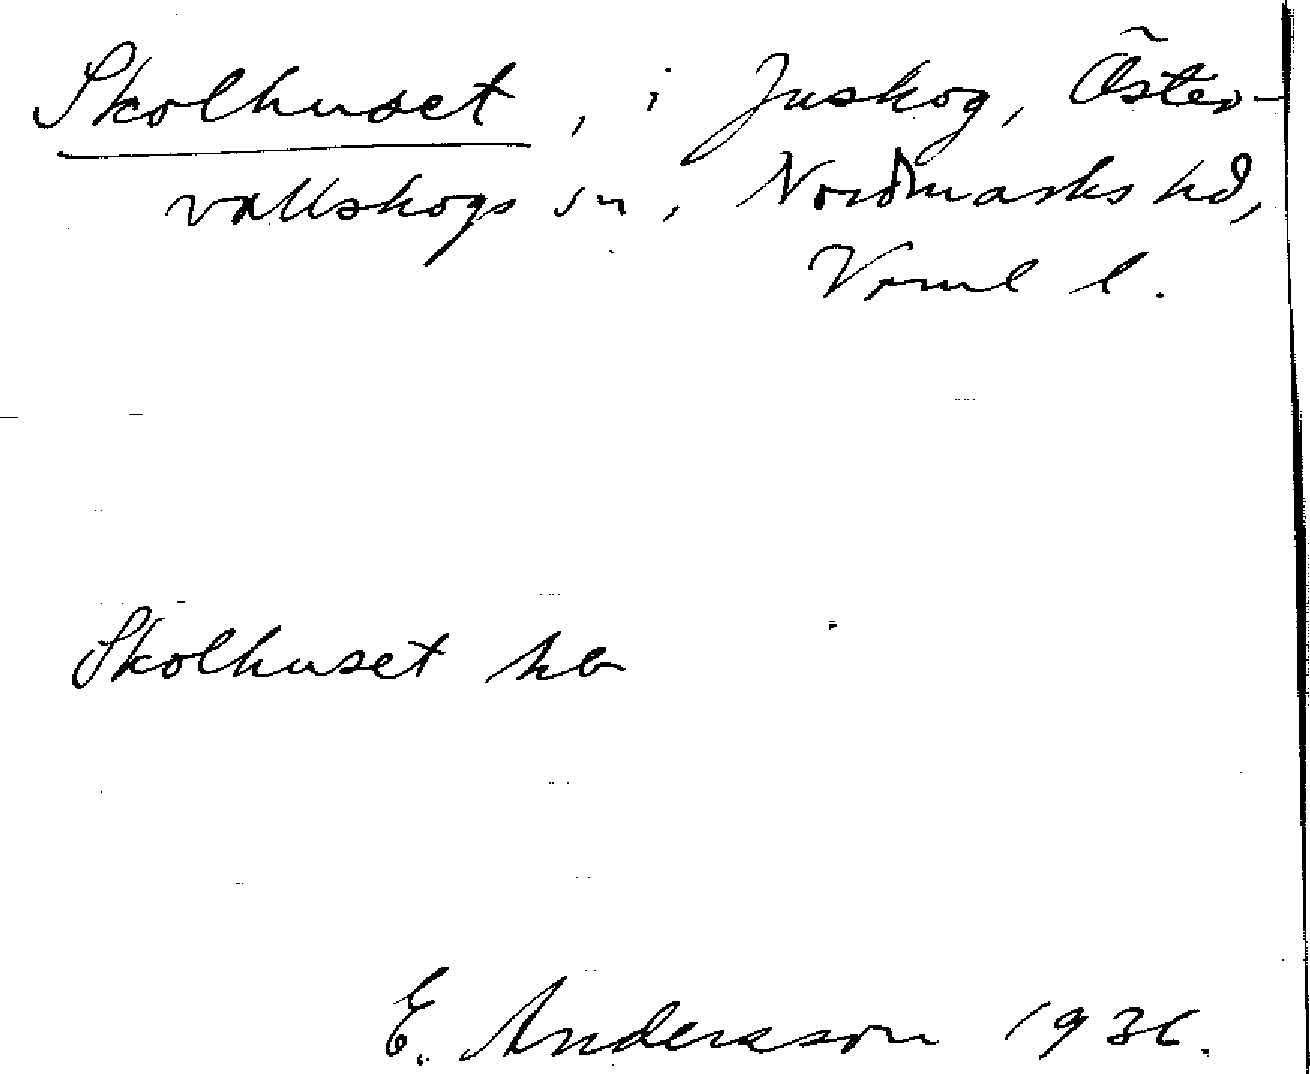 Skolhuset, i Juskog, Öster-
vallskogs sn, Nordmarks hd,
Vrml l.
Skolhuset hb
E. Andersson 1936.